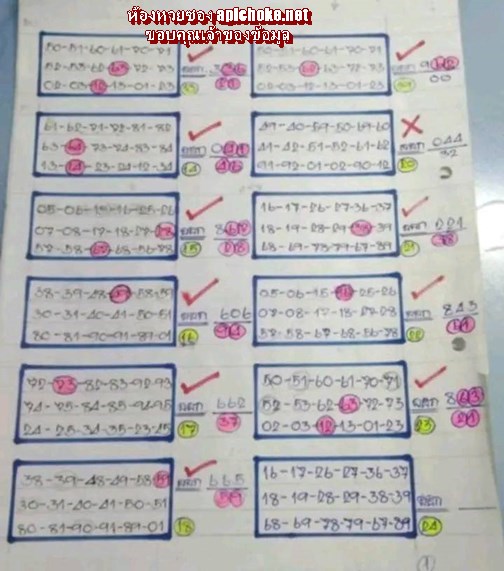 ห้องหวยซอง apichoke.net
ขอบคุณเจ้าของข้อมูล
50-51-60-61-70-71
52-53-62-63-72-73
02-03-12-13-01-23
50-51-60-61-70-71
52-53-62-63-72-73
02-03-12-13-01-23
61-62-71-72-81-82
63-64-73-74-83-84
13-14-23-24-12-34
14
49-40-59-50-69-60
41-42-51-52-61-62
91-92-01-02-90-12
ออก 044
32
20
05-06-15-16-25-26
07-08-17-18-27-28
57-58-67-68-56-78
15
16-17-26-27-36-37
18-19-28-29-38-39
68-69-78-79-67-89
ออก 221
38
21
38-39-48-49-58-59
30-31-40-41-50-51
80-81-90-91-89-01
ออก 606
16
05-06-15-16-25-26
07-08-17-18-27-28
57-58-67-68-56-78
ออก 843
22
72-73-82-83-92-93
74-75-84-85-94-95
24-25-34-35-23-45
ออก 662
37
17
50-51-60-61-70-71
52-53-62-63-72-73
02-03-12-13-01-23
ออก 863
21
23
38-39-48-49-58-59
30-31-40-41-50-51
80-81-90-91-89-01
ออก 665
59
18
16-17-26-27-36-37
18-19-28-29-38-39
68-69-78-79-67-89
ออก
24